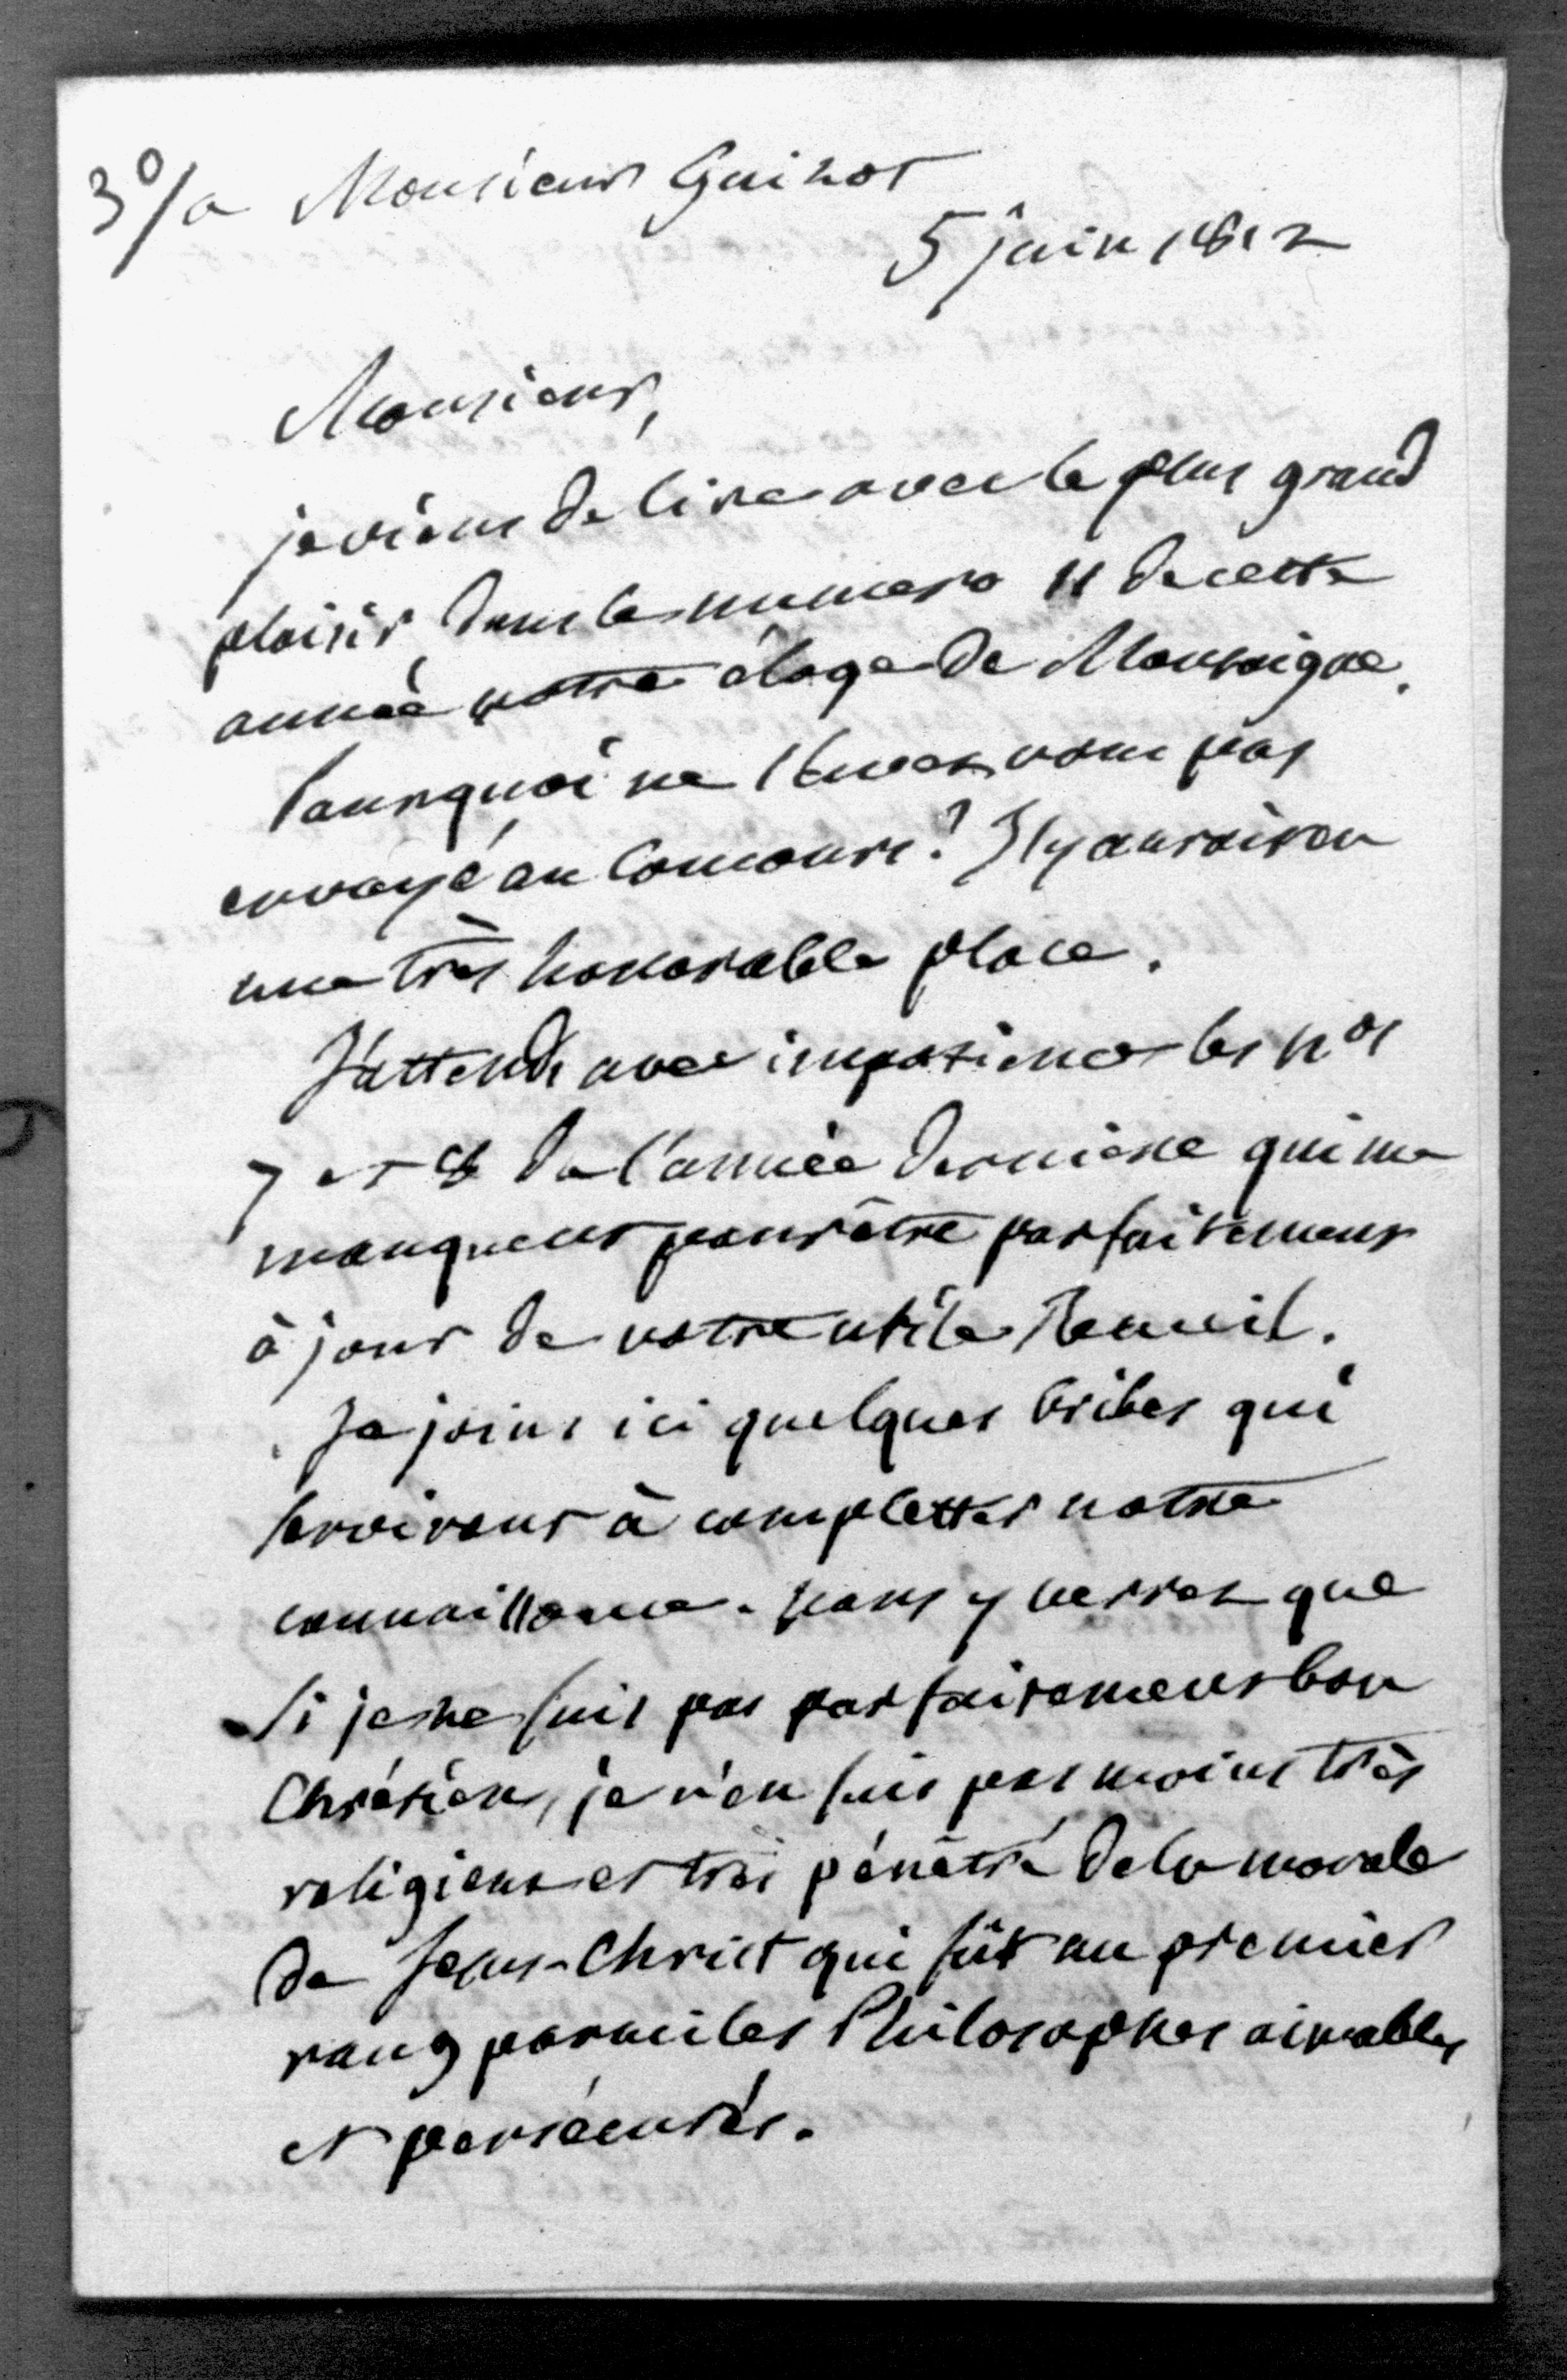 3º/a Monsieur Guizot
5 juin 1812
Monsieur,
je viens de lire avec le plus grand
plaisir, dans le numero 11 de cette
année votre éloge de Montaigne.
Pourquoi ne l'avez vous pas
envoyé au Concours? Il y auroit eu
une très honorable place.
J'attends avec impatience les nos
7 et 8 de l'année derniere qui me
manquent pour être parfaitement
à jour de votre utile Recueil.
Je joins ici quelques bribes qui
serviront à completter notre
connaissance. Vous y verrez que
si je ne suis pas parfaitement bon
Chrétien, je n'en suis pas moins très
religieux et très pénétré de la morale
de Jesus-Christ qui fût au premier
rang parmi les Philosophes aimables
et persécutés.